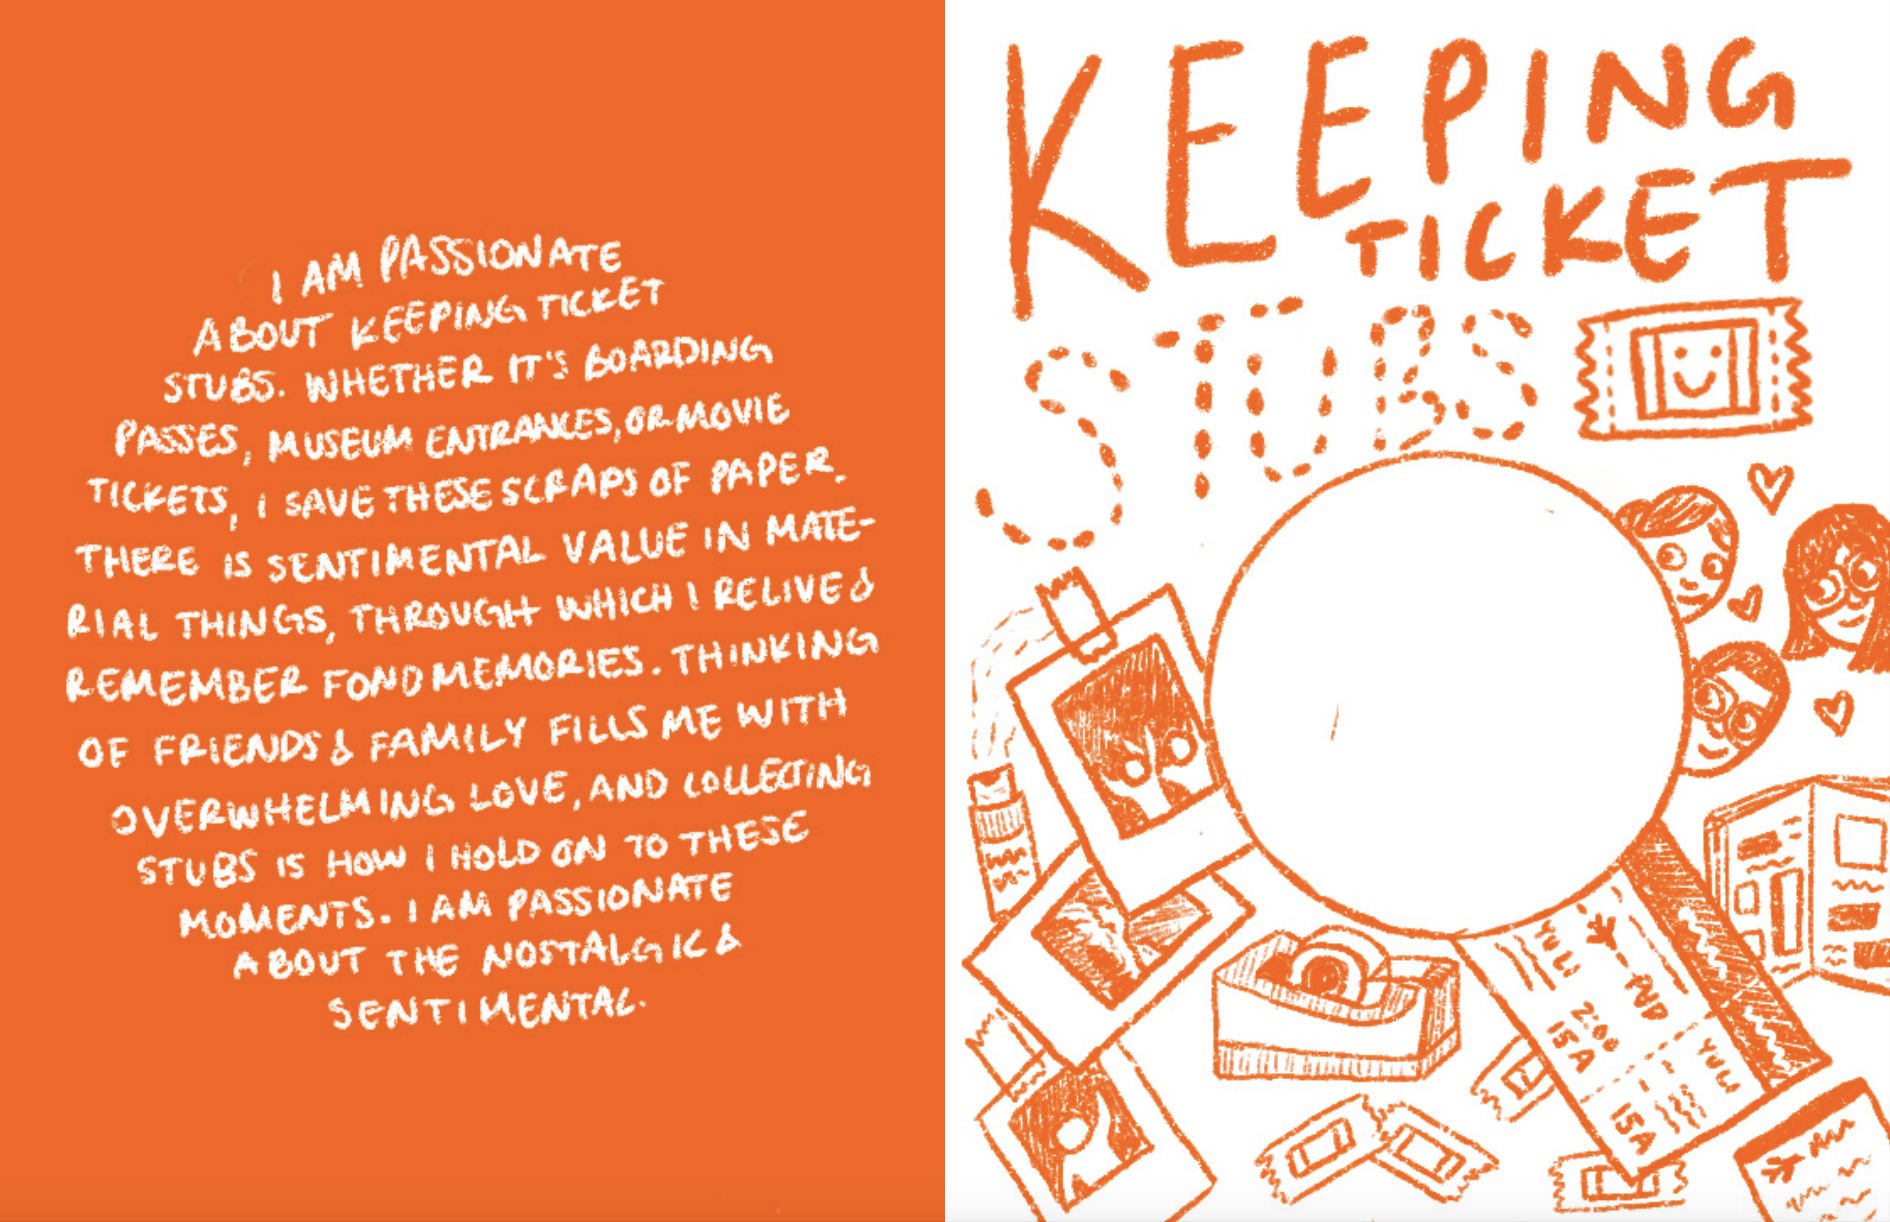 I AM PASSIONATE
ABOUT KEEPING TICKET
STUBS. WHETHER IT'S BOARDING
PASSES, MUSEUM ENTRANCES, OR MOVIE
TICKETS, I SAVE THESE SCRAPS OF PAPER.
THERE IS SENTIMENTAL VALUE IN MATE-
RIAL THINGS, THROUGH WHICH I RELIVE &
REMEMBER FOND MEMORIES. THINKING
OF FRIENDS & FAMILY FILLS ME WITH
OVERWHELMING LOVE, AND COLLECTING
STUBS IS HOW I HOLD ON TO THESE
MOMENTS. I AM PASSIONATE
ABOUT THE NOSTALGIC &
SENTIMENTAL.
KEEPING
TICKET
STUBS
YULI
PVD
2:00
15A
YULI
15A